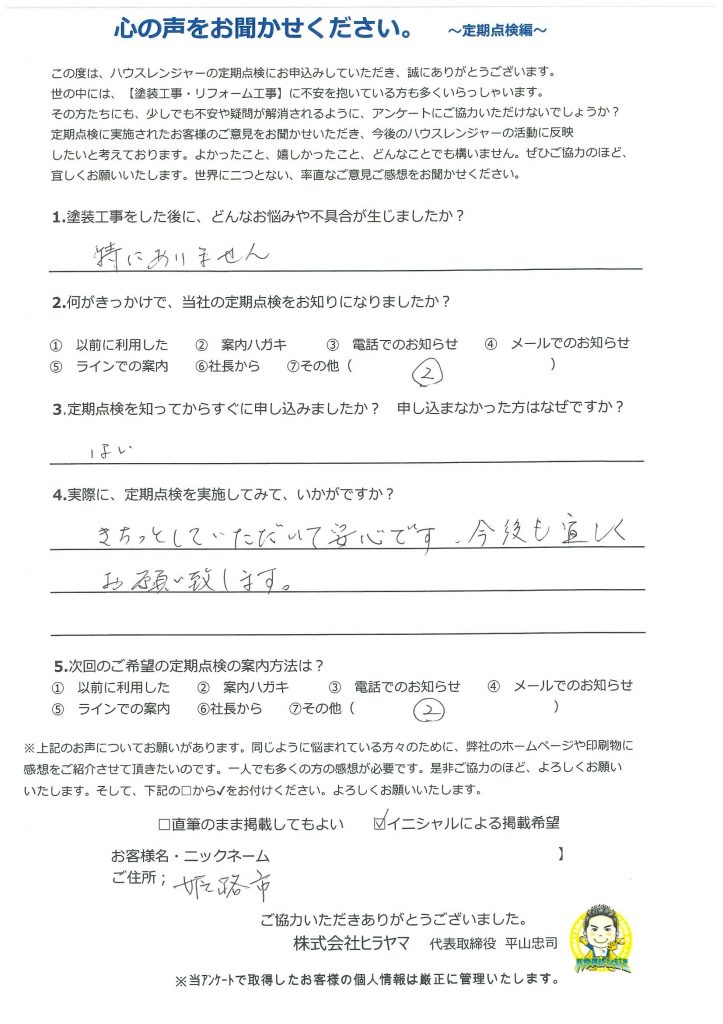 心の声をお聞かせください。 ～定期点検編～
この度は、ハウスレンジャーの定期点検にお申込みしていただき、誠にありがとうございます。
世の中には、【塗装工事・リフォーム工事】に不安を抱いている方も多くいらっしゃいます。
その方たちにも、少しでも不安や疑問が解消されるように、アンケートにご協力いただけないでしょうか？
定期点検に実施されたお客様のご意見をお聞かせいただき、今後のハウスレンジャーの活動に反映
したいと考えております。よかったこと、嬉しかったこと、どんなことでも構いません。ぜひご協力のほど、
宜しくお願いいたします。世界に二つとない、率直なご意見ご感想をお聞かせください。
1.塗装工事をした後に、どんなお悩みや不具合が生じましたか？
特にありません
2.何がきっかけで、当社の定期点検をお知りになりましたか？
① 以前に利用した ② 案内ハガキ ③ 電話でのお知らせ ④ メールでのお知らせ
⑤ ラインでの案内 ⑥社長から ⑦その他（ ② ）
3.定期点検を知ってからすぐに申し込みましたか？ 申し込まなかった方はなぜですか？
はい
4.実際に、定期点検を実施してみて、いかがですか？
きちっとしていただいて安心です、今後も宜しく
お願い致します。
5.次回のご希望の定期点検の案内方法は？
① 以前に利用した ② 案内ハガキ ③ 電話でのお知らせ ④ メールでのお知らせ
⑤ ラインでの案内 ⑥社長から ⑦その他（ ② ）
※上記のお声についてお願いがあります。同じように悩まれている方々のために、弊社のホームページや印刷物に
感想をご紹介させて頂きたいのです。一人でも多くの方の感想が必要です。是非ご協力のほど、よろしくお願い
いたします。そして、下記の□から✓をお付けください。よろしくお願いいたします。
□直筆のまま掲載してもよい ☑イニシャルによる掲載希望
お客様名・ニックネーム 】
ご住所； 姫路市
ご協力いただきありがとうございました。
株式会社ヒラヤマ 代表取締役 平山忠司
ハウスレンジャー
※当アンケートで取得したお客様の個人情報は厳正に管理いたします。